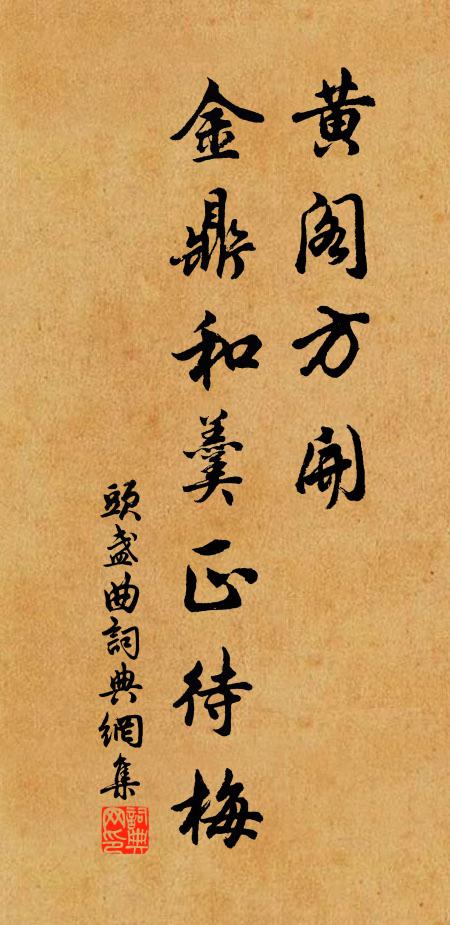 黄阁方开
金鼎和羹正待梅
頭盞曲詞典網集
詞典网印